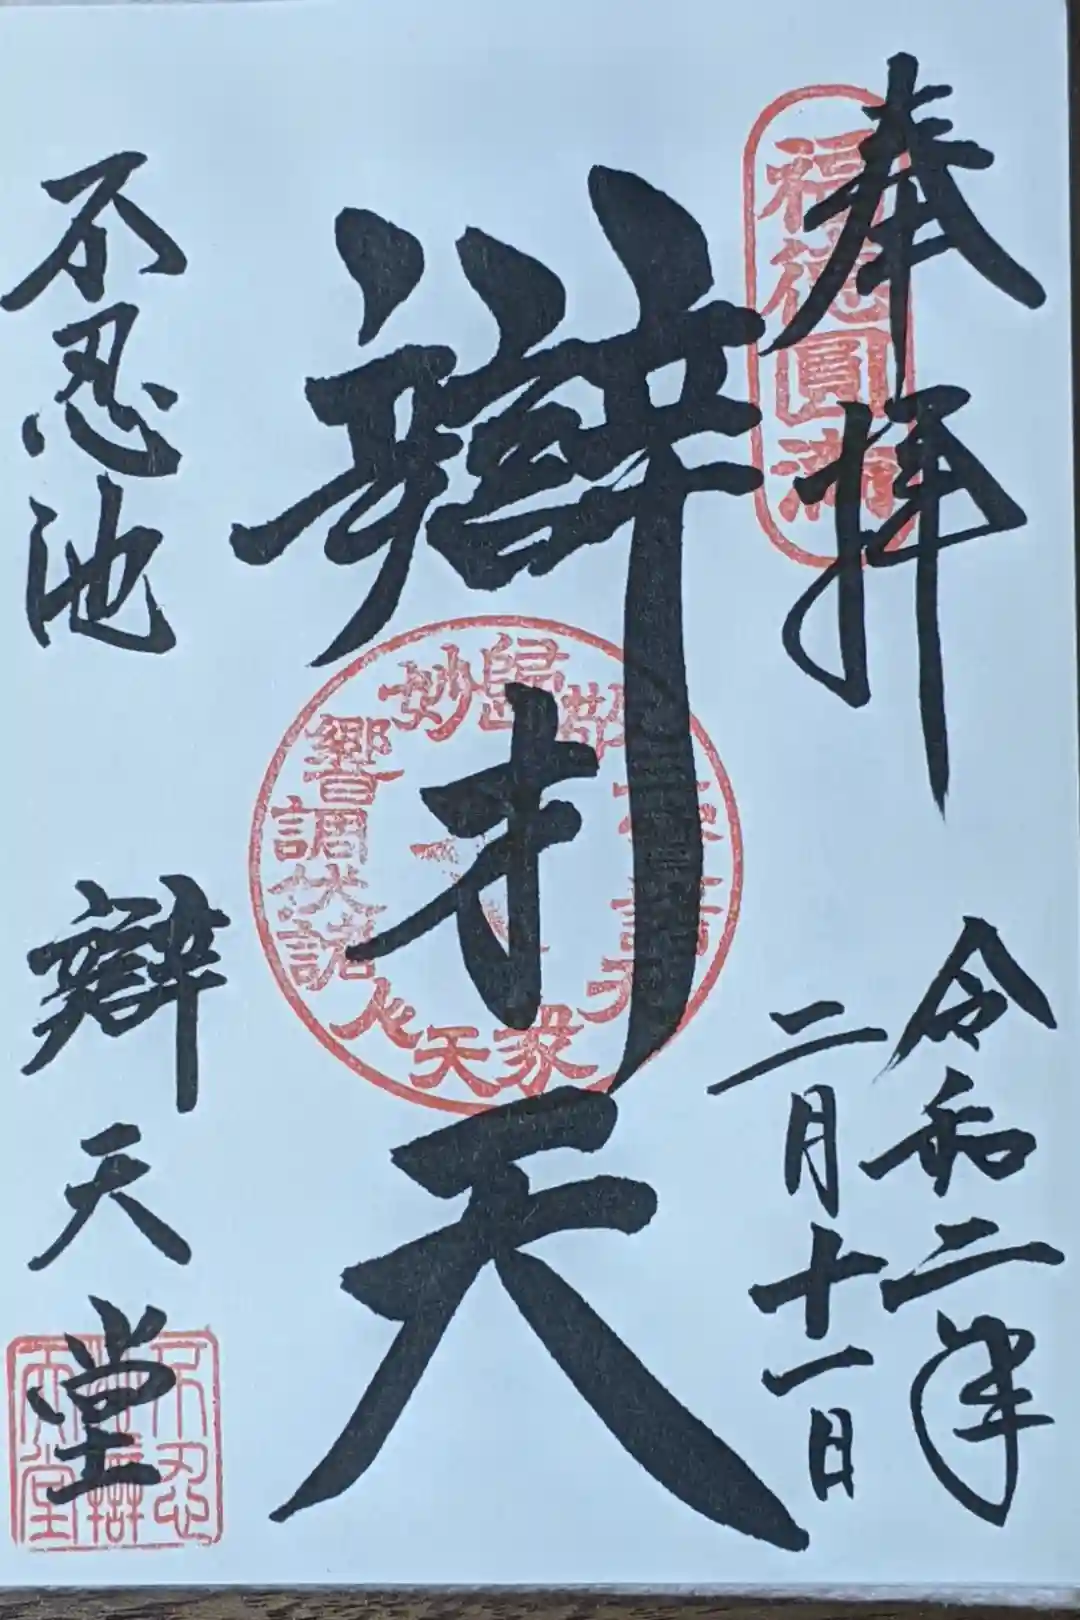 奉拝
福徳圓満
令和二年
二月十一日
辯才天
不忍池
辯天堂
不忍
池辯
天堂